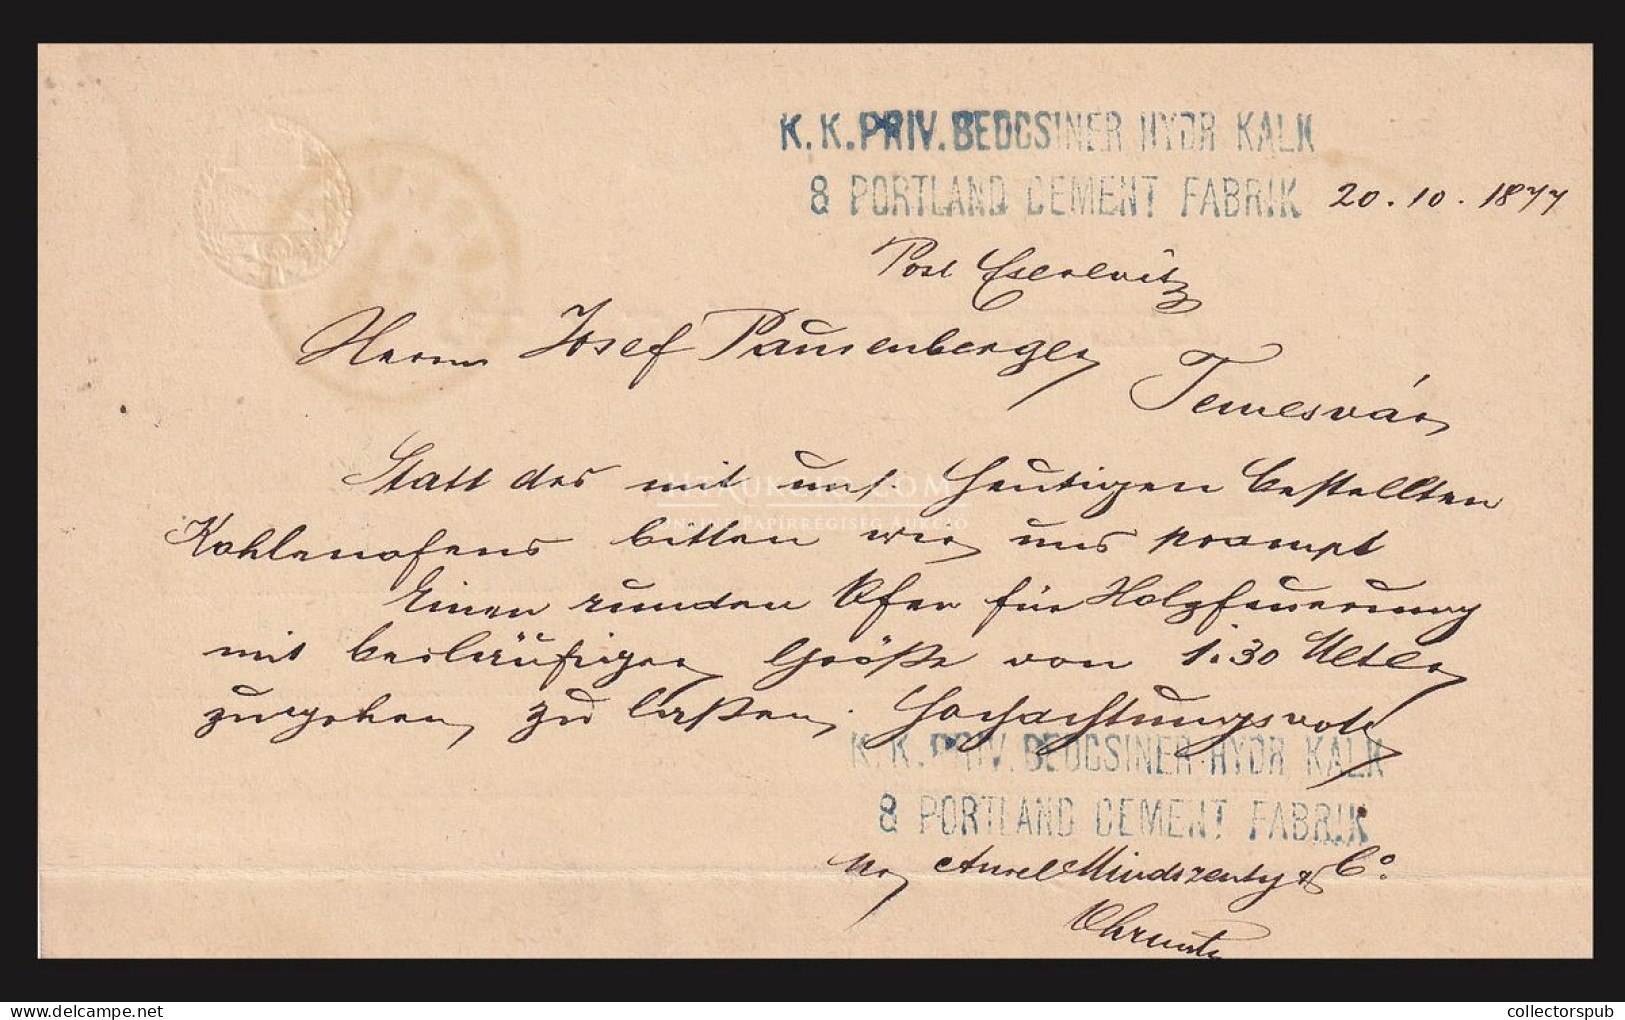 K. K. PRIV. BEOCSINER HYDR KALK
& PORTLAND CEMENT FABRIK 20. 10. 1877
Post Cserevitz
Herrn Josef Pausenberger
Temesvár
Statt des mit uns. Heutigen bestellten
Kohlenofens bitten wir uns prompt
Einen runden Ofen für Holzfeuerung
mit beiläufiger Größe von 1.30 Meter
zugehen zu laßen. Hochachtungsvoll
K. K. PRIV. BEOCSINER HYDR KALK
& PORTLAND CEMENT FABRIK
Aurel Mindszenty & Co.
HUNGARICANA.COM
ONLINE PAPÍRRÉGISÉG AUKCIÓ
collectorspub